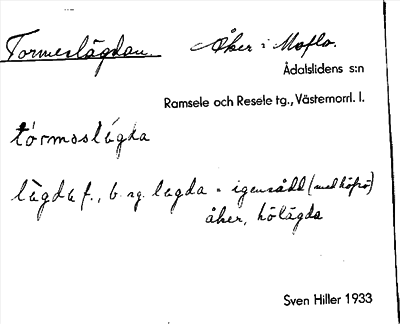 Tormeslägdan. Åker i Moflo.
Ådalslidens s:n
Ramsele och Resele tg., Västernorrl. l.
tórməslä̀gda
lä̀gda f., b. sg. lägda = igensådd (med höfrö)
åker, hölägda
Sven Hiller 1933